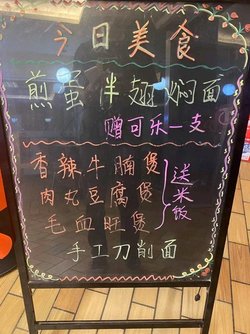 今日美食
煎蛋伴翅焖面
赠可乐一支
香辣牛腩煲
肉丸豆腐煲
毛血旺煲
送米饭
手工刀削面